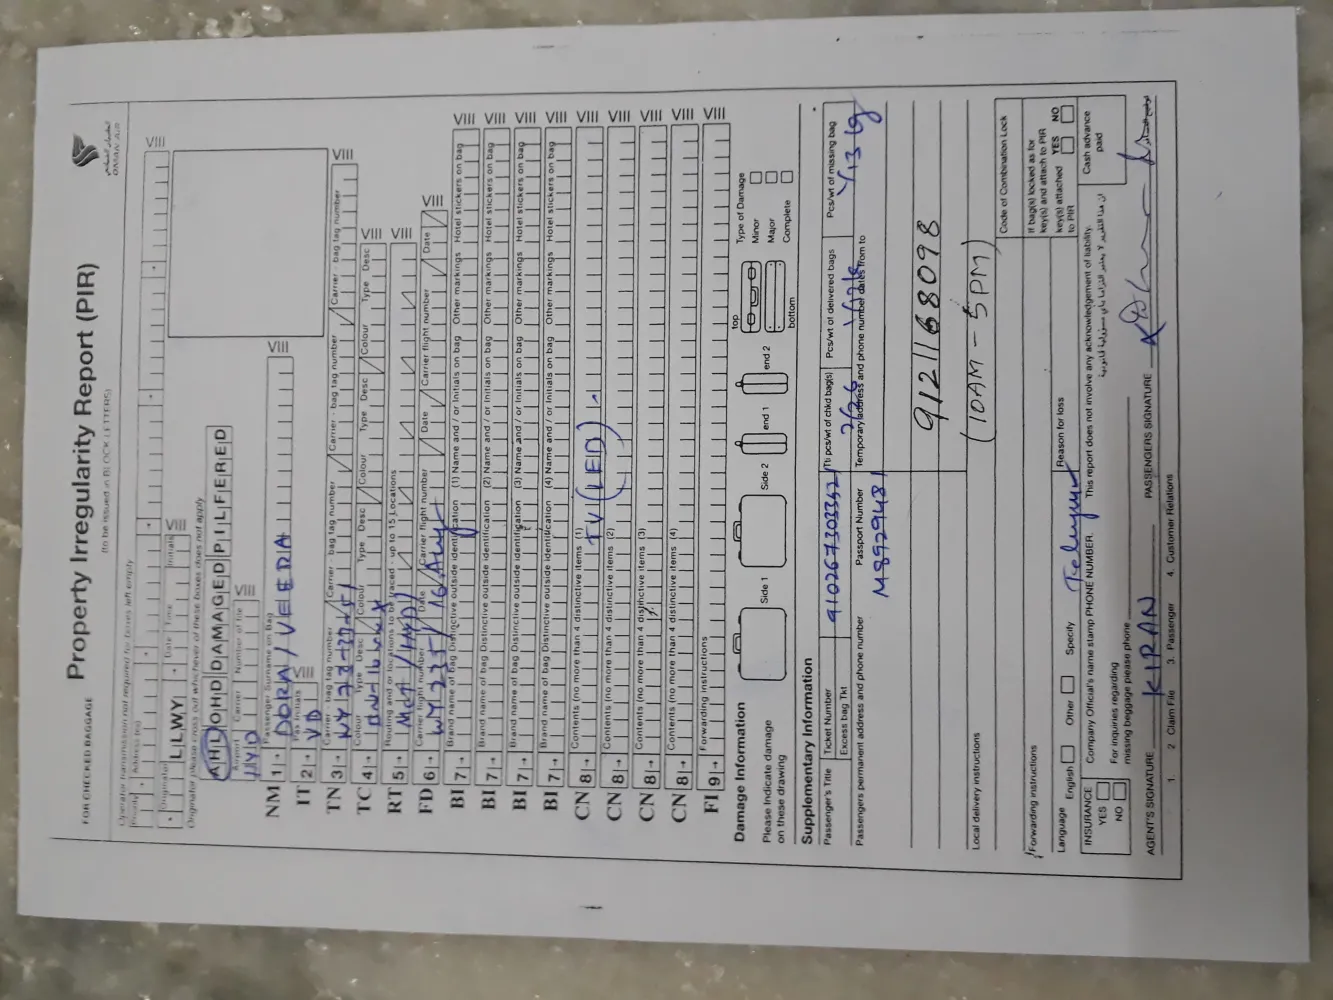 FOR CHECKED BAGGAGE
Property Irregularity Report (PIR)
(to be issued in BLOCK LETTERS)
OMAN AIR
Operator transmission not required for boxes left empty
Address (es)
VIII
Originator
Date / Time
Initials
VIII
LLWY
Originator please cross out whichever of these boxes does not apply
AHL OHD DAMAGED PILFERED
Airport Carrier Number of file VIII
HYD
Passenger Surname on Bag
NM 1 DORA / VEERA VIII
Pax Initials
IT 2 VD VIII
Carrier - bag tag number Carrier - bag tag number Carrier - bag tag number Carrier - bag tag number
TN 3 VIII
Colour Type Desc Colour Type Desc Colour Type Desc Colour Type Desc
TC 4 VIII
Routing and or locations to be traced - up to 15 Locations
RT 5 MCT / HYD VIII
Carrier flight number Date Carrier flight number Date Carrier flight number Date
FD 6 WY 235 / 16 Aug VIII
Brand name of bag Distinctive outside identification (1) Name and / or Initials on bag Other markings Hotel stickers on bag
BI 7 VIII
Brand name of bag Distinctive outside identification (2) Name and / or Initials on bag Other markings Hotel stickers on bag
BI 7 VIII
Brand name of bag Distinctive outside identification (3) Name and / or Initials on bag Other markings Hotel stickers on bag
BI 7 VIII
Brand name of bag Distinctive outside identification (4) Name and / or Initials on bag Other markings Hotel stickers on bag
BI 7 VIII
Contents (no more than 4 distinctive items (1)
CN 8 TV (LED) VIII
Contents (no more than 4 distinctive items (2)
CN 8 VIII
Contents (no more than 4 distinctive items (3)
CN 8 VIII
Contents (no more than 4 distinctive items (4)
CN 8 VIII
Forwarding instructions
FI 9 VIII
Damage Information
Please Indicate damage
on these drawing
Side 1
Side 2
end 1
end 2
top
bottom
Type of Damage
Minor
Major
Complete
Supplementary Information
Passenger's Title
Ticket Number
Excess bag Tkt
9102673033521
Ttl pcs/wt of chkd bag(s)
2/26
Pcs/wt of delivered bags
Pcs/wt of missing bag
1/13 kg
Passengers permanent address and phone number
Passport Number
M8929481
Temporary address and phone number dates from to
9121168098
(10AM - 5PM)
Local delivery instructions
Code of Combination Lock
Forwarding instructions
If bag(s) locked as for
key(s) and attach to PIR
key(s) attached YES NO
to PIR
Language
English Other Specify Telugu
Reason for loss
INSURANCE
YES
NO
Company Official's name stamp PHONE NUMBER. This report does not involve any acknowledgement of liability.
For inquiries regarding
missing beggage please phone
Cash advance
paid
AGENT'S SIGNATURE KIRAN PASSENGERS SIGNATURE
1. 2 Claim File 3. Passenger 4. Customer Relations